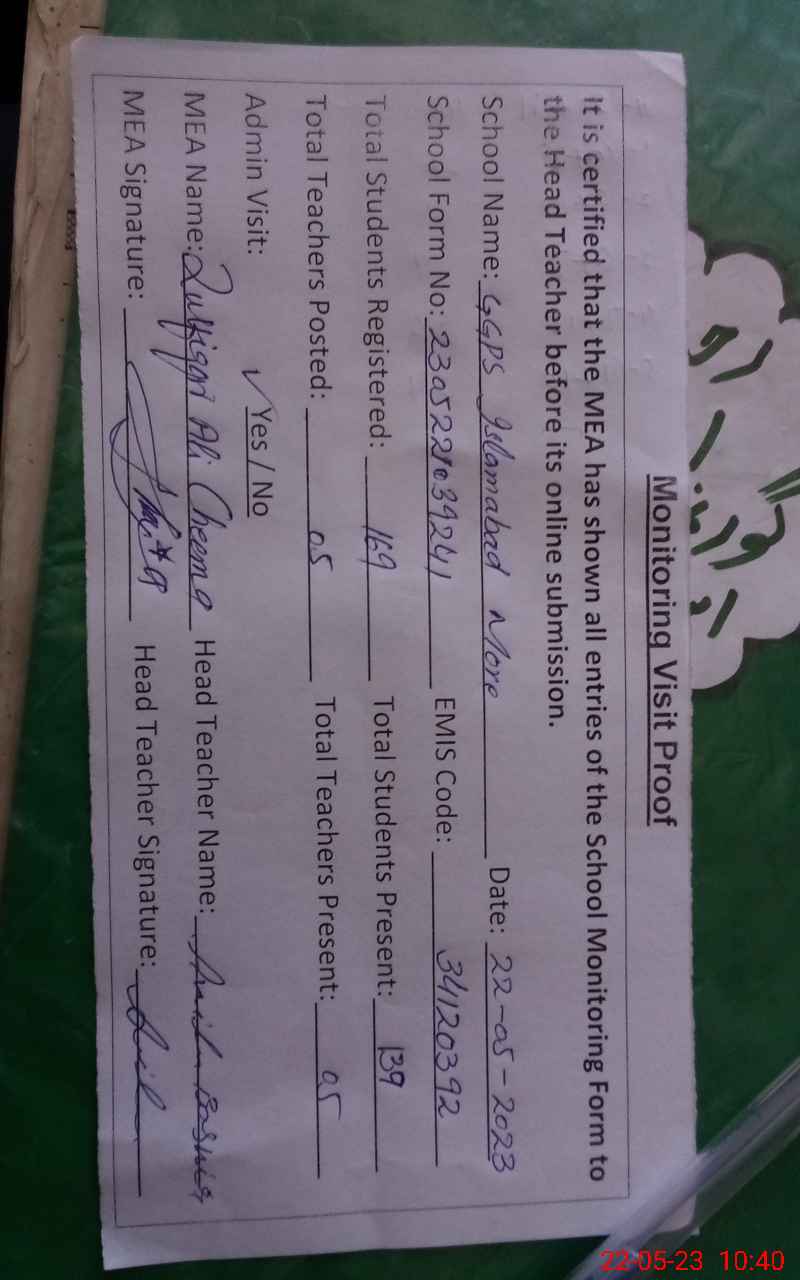 Monitoring Visit Proof
It is certified that the MEA has shown all entries of the School Monitoring Form to
the Head Teacher before its online submission.
School Name: GGPS Islamabad More Date: 22-05-2023
School Form No: 230522103924 EMIS Code: 34120392
Total Students Registered: 169 Total Students Present: 139
Total Teachers Posted: 05 Total Teachers Present: 05
Admin Visit: ✓ Yes / No
MEA Name: Zulfiqar Ali Cheema Head Teacher Name: Bashir
MEA Signature: Head Teacher Signature:
22-05-23 10:40